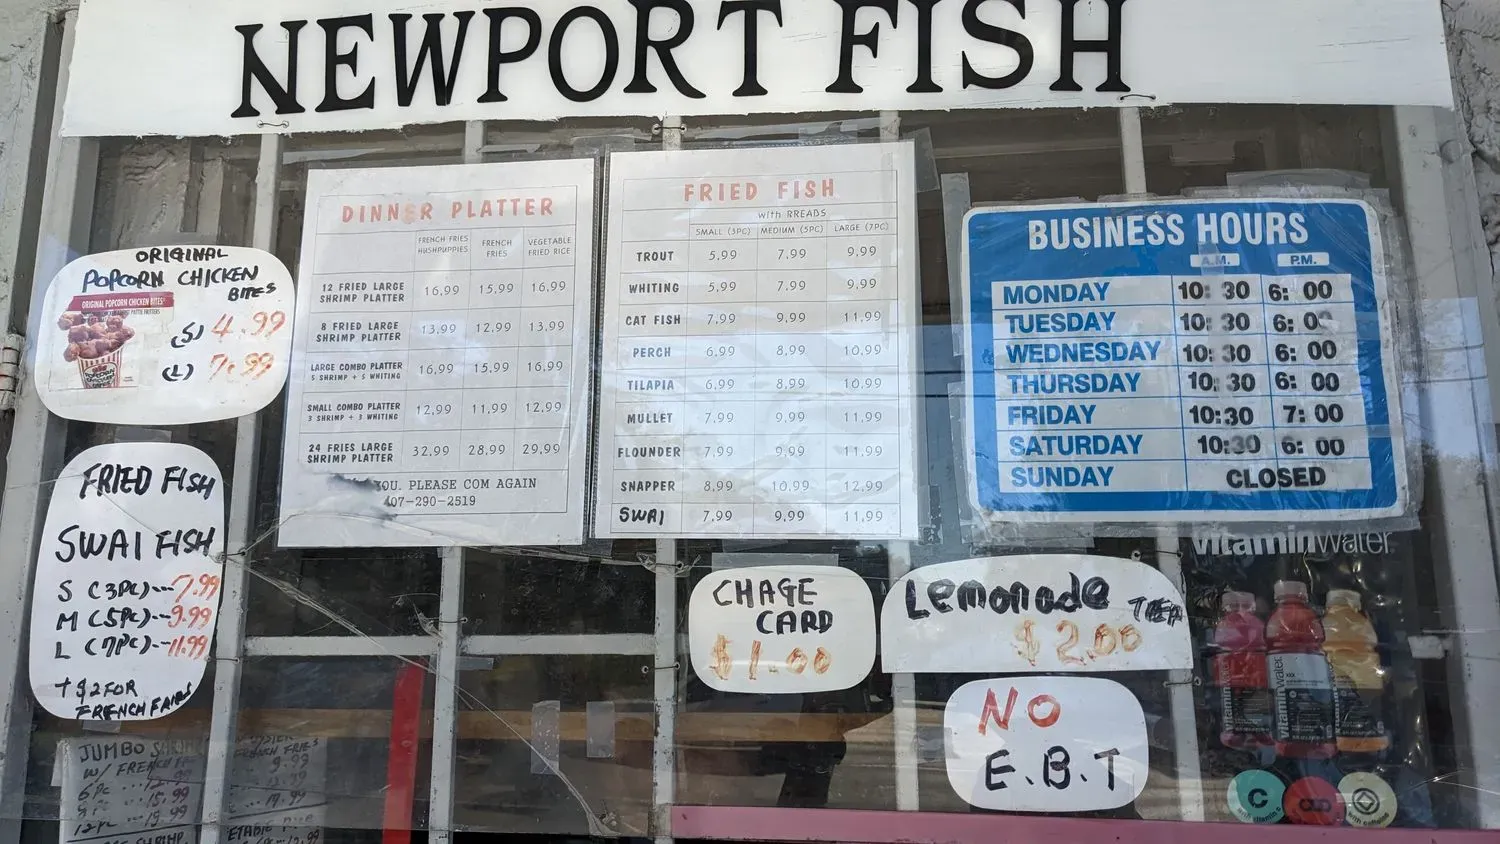 NEWPORT FISH
ORIGINAL
POPCORN CHICKEN
BITES
ORIGINAL POPCORN CHICKEN BITES
(S) 4.99
(L) 7.99
FRIED FISH
SWAI FISH
S (3PC)---7.99
M (5PC)--9.99
L (7PC)--11.99
+ $2 FOR
FRENCH FRIES
JUMBO
W/ FRENCH
6pc
15.99
12pc -- 19.99
FRENCH FRIES
9.99
DINNER PLATTER
FRENCH FRIES HUSHPUPPIES FRENCH FRIES VEGETABLE FRIED RICE
12 FRIED LARGE SHRIMP PLATTER 16,99 15,99 16,99
8 FRIED LARGE SHRIMP PLATTER 13,99 12,99 13,99
LARGE COMBO PLATTER 5 SHRIMP + 5 WHITING 16,99 15,99 16,99
SMALL COMBO PLATTER 3 SHRIMP + 3 WHITING 12,99 11,99 12,99
24 FRIES LARGE SHRIMP PLATTER 32,99 28,99 29,99
YOU. PLEASE COM AGAIN
407-290-2519
FRIED FISH
with BREABS
SMALL (3PC) MEDIUM (5PC) LARGE (7PC)
TROUT 5,99 7,99 9,99
WHITING 5,99 7,99 9,99
CAT FISH 7,99 9,99 11,99
PERCH 6,99 8,99 10,99
TILAPIA 6,99 8,99 10,99
MULLET 7,99 9,99 11,99
FLOUNDER 7,99 9,99 11,99
SNAPPER 8,99 10,99 12,99
SWAI 7,99 9,99 11,99
BUSINESS HOURS
A.M. P.M.
MONDAY 10:30 6:00
TUESDAY 10:30 6:00
WEDNESDAY 10:30 6:00
THURSDAY 10:30 6:00
FRIDAY 10:30 7:00
SATURDAY 10:30 6:00
SUNDAY CLOSED
CHAGE
CARD
$1.00
Lemonade
$2.00
NO
E.B.T
vitaminwater
vitaminwater
vitaminwater
C
with caffeine